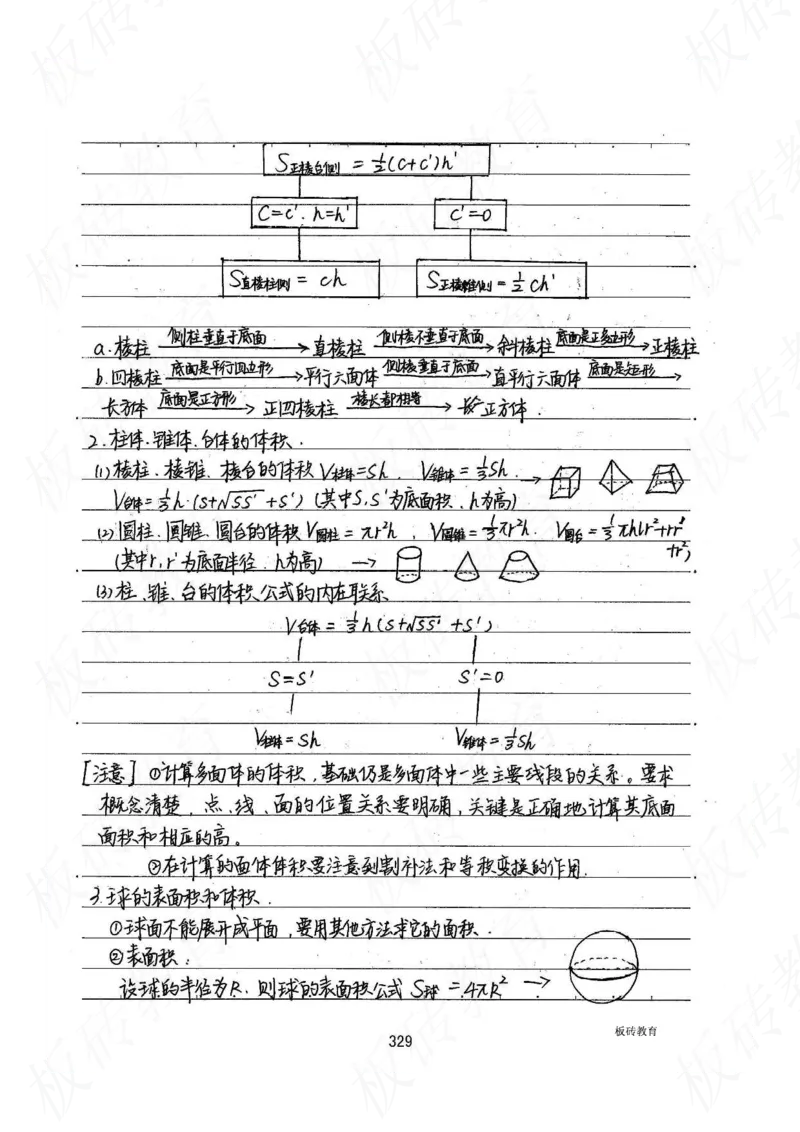 S正棱台侧 = ½(c+c')h'
C=c'. h=h'
c'=0
S直棱柱侧 = ch
S正棱锥侧 = ½ch'
a.棱柱 侧柱垂直于底面→直棱柱 侧棱不垂直于底面→斜棱柱 底面是正多边形→正棱柱
b.四棱柱 底面是平行四边形→平行六面体 侧棱垂直于底面→直平行六面体 底面是矩形→
长方体 底面是正方形→正四棱柱 棱长都相等→正方体.
2.柱体.锥体.台体的体积.
(1)棱柱.棱锥.棱台的体积 V柱体=Sh. V锥体=⅓Sh. →
V台体=⅓h·(S+√SS'+S') (其中S,S'为底面积.h为高)
(2)圆柱.圆锥.圆台的体积 V圆柱=πr²h, V圆锥=⅓πr²h. V圆台=⅓πh(r²+rr'
+r'²)
(其中r,r'为底面半径.h为高) →
(3)柱、锥、台的体积公式的内在联系
V台体=⅓h(S+√SS'+S')
S=S'
S'=0
V柱体=Sh
V锥体=⅓Sh
[注意] ①计算多面体的体积,基础仍是多面体中一些主要线段的关系。要求
概念清楚,点、线、面的位置关系要明确,关键是正确地计算其底面
面积和相应的高。
②在计算的面体体积要注意到割补法和等积变换的作用.
3.球的表面积和体积.
①球面不能展开成平面,要用其他方法求它的面积.
②表面积:
设球的半径为R.则球的表面积公式 S球=4πR² →
板砖教育
329